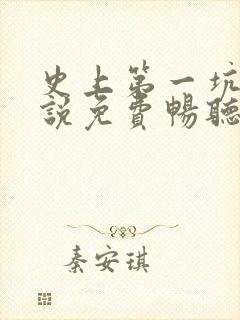 史上第一坑
說免費暢聽
秦安琪